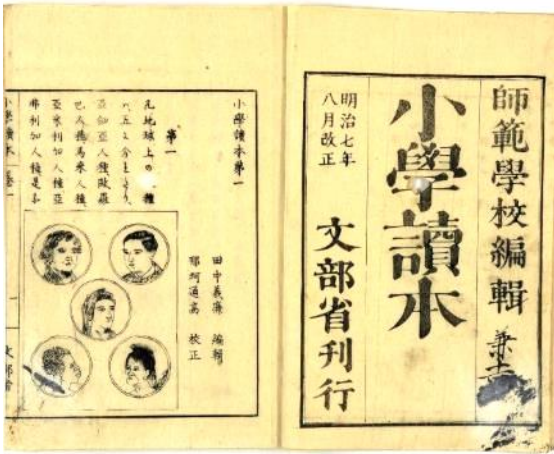 師範學校編輯
小學讀本
明治七年
八月改正
文部省刊行
小學讀本第一
田中義廉 編輯
那珂通高 校正
第一
凡地球上の人種
ハ五つに分れたり、
亞細亞人種歐羅
巴人種馬來人種
亞米利加人種亞
弗利加人種是な
小學讀本 卷一
一
文部省